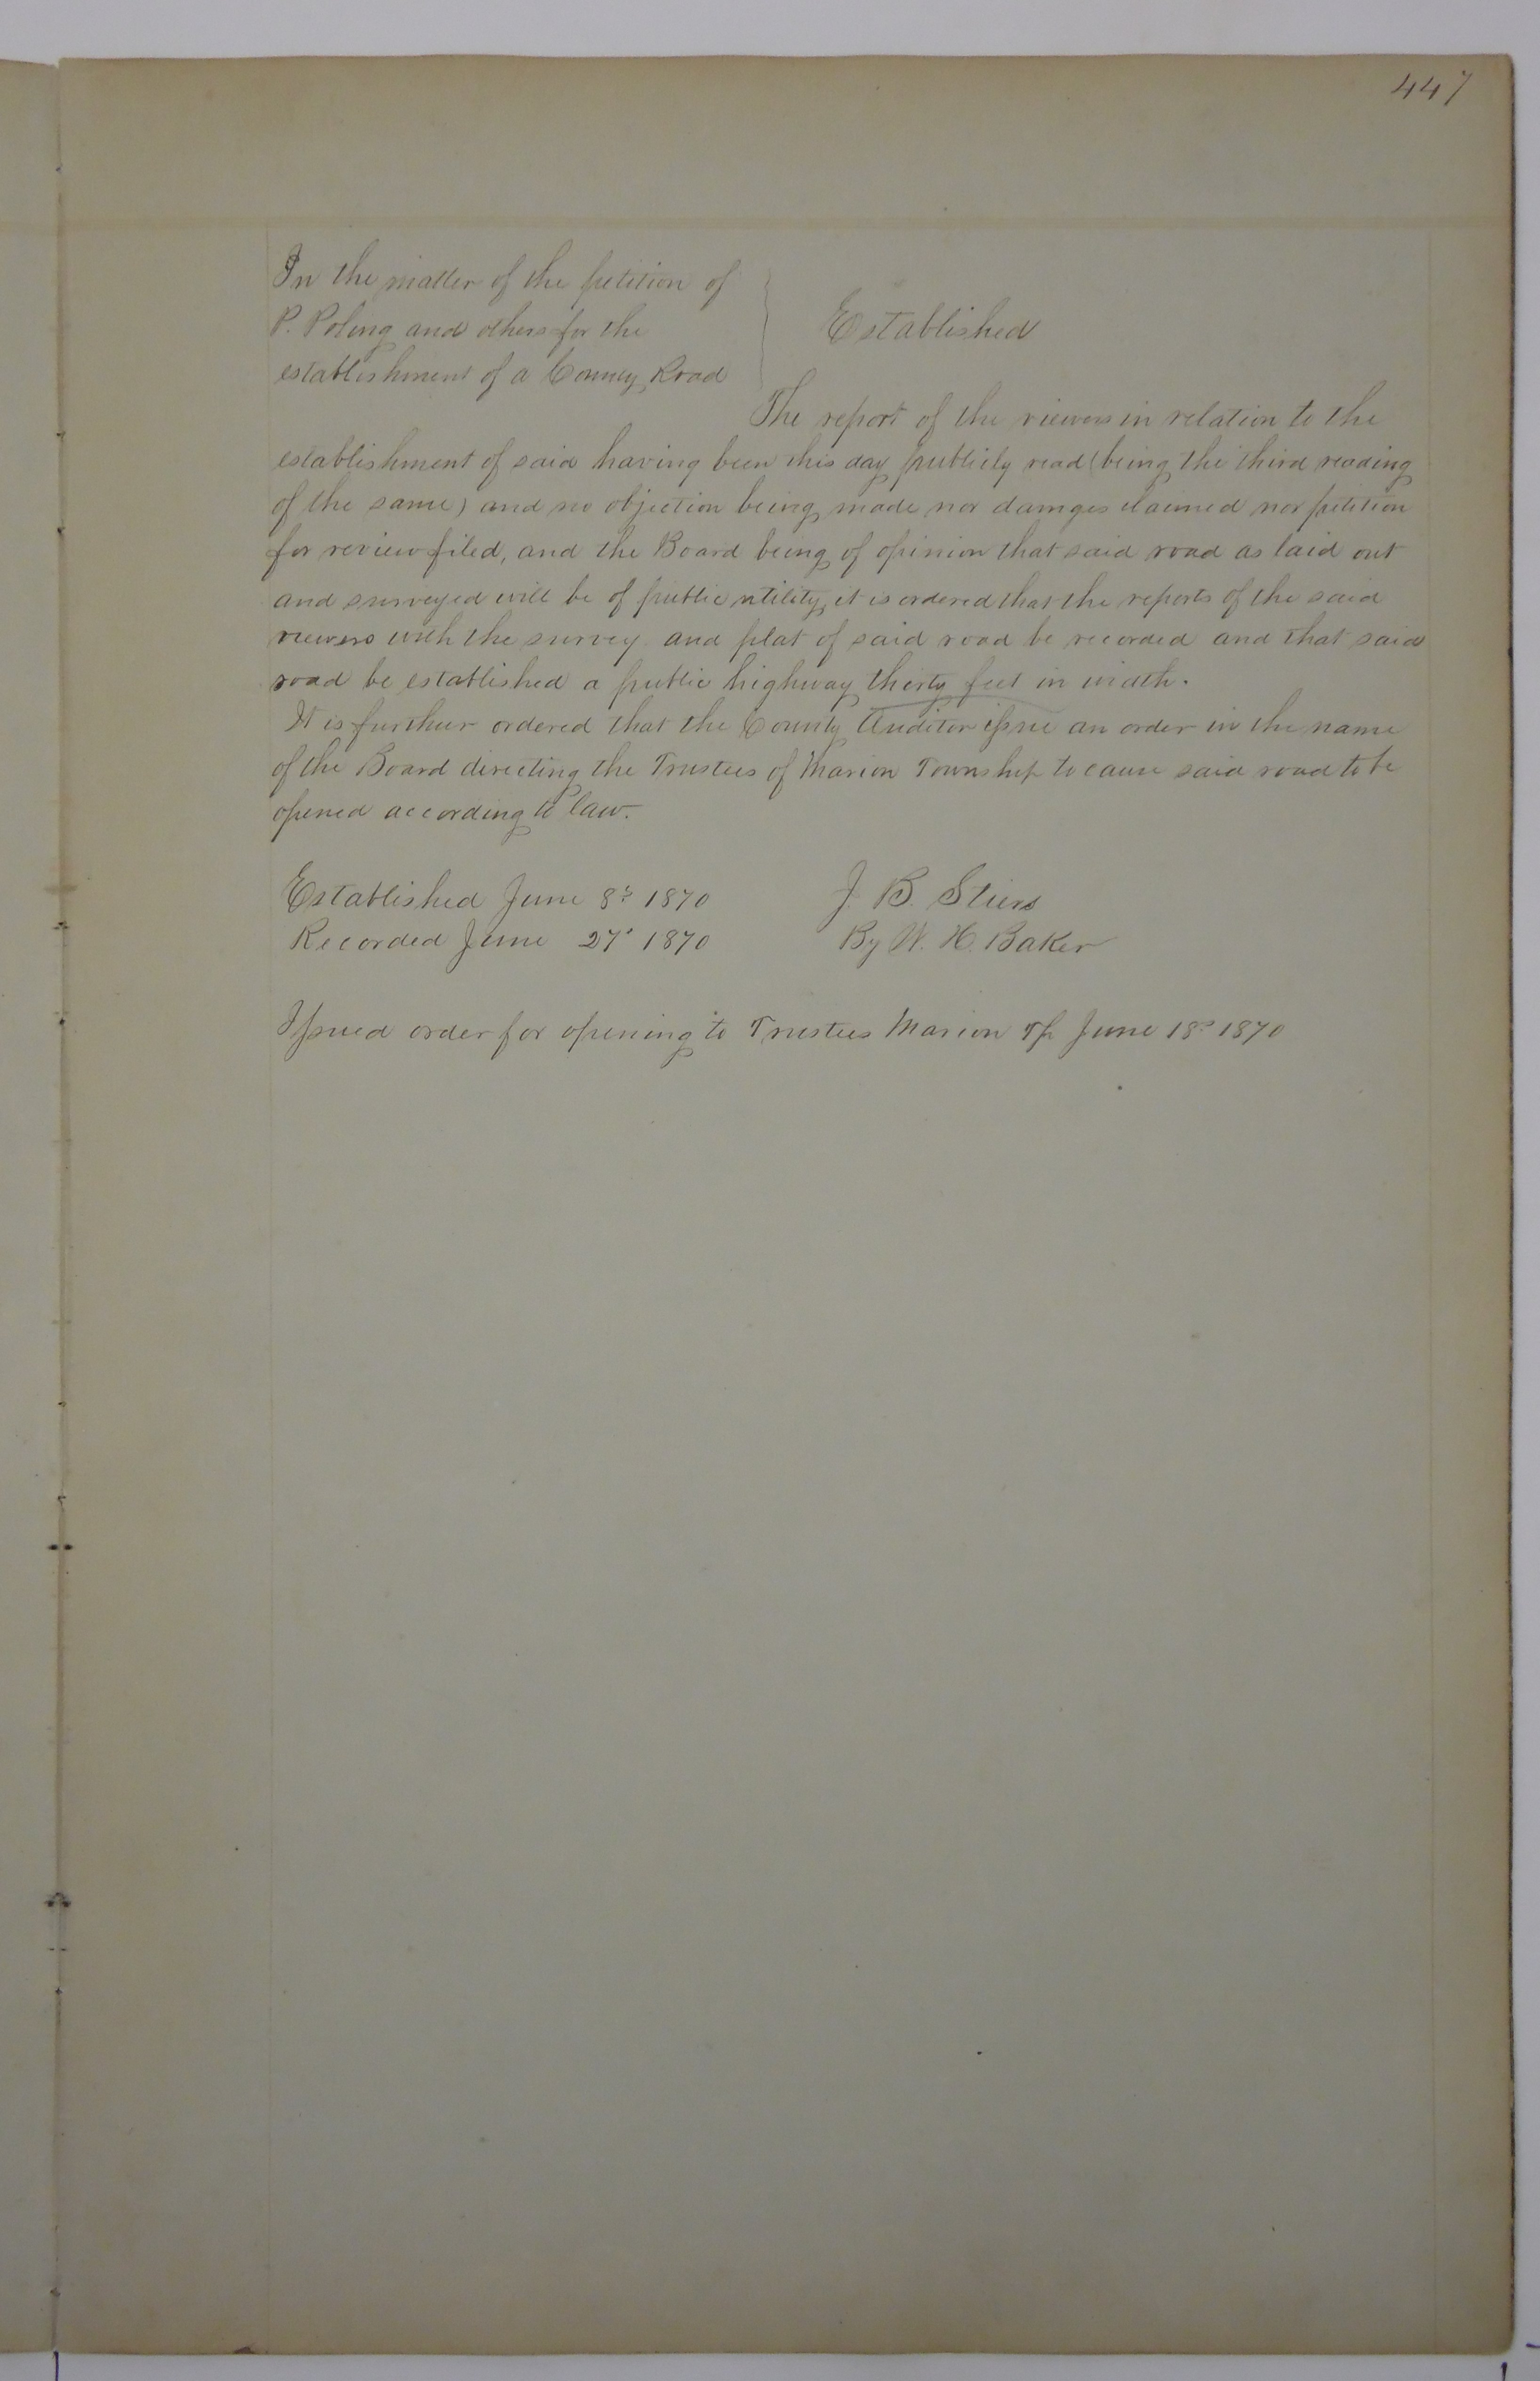 447
In the matter of the petition of
P. Poling and others for the
establishment of a County Road
Established
The report of the viewers in relation to the
establishment of said having been this day publicly read (being the third reading
of the same) and no objection being made nor damges claimed nor petition
for review filed, and the Board being of opinion that said road as laid out
and surveyed will be of public utility, it is ordered that the reports of the said
viewers with the survey and plat of said road be recorded and that said
road be established a public highway thirty feet in width.
It is further ordered that the County Auditor issue an order in the name
of the Board directing the Trustees of Marion Township to cause said road to be
opened according to law.
Established June 8th 1870
J. B. Stiers
Recorded June 27" 1870
By W. H. Baker
Issued order for opening to Trustees Marion Tp June 18th 1870